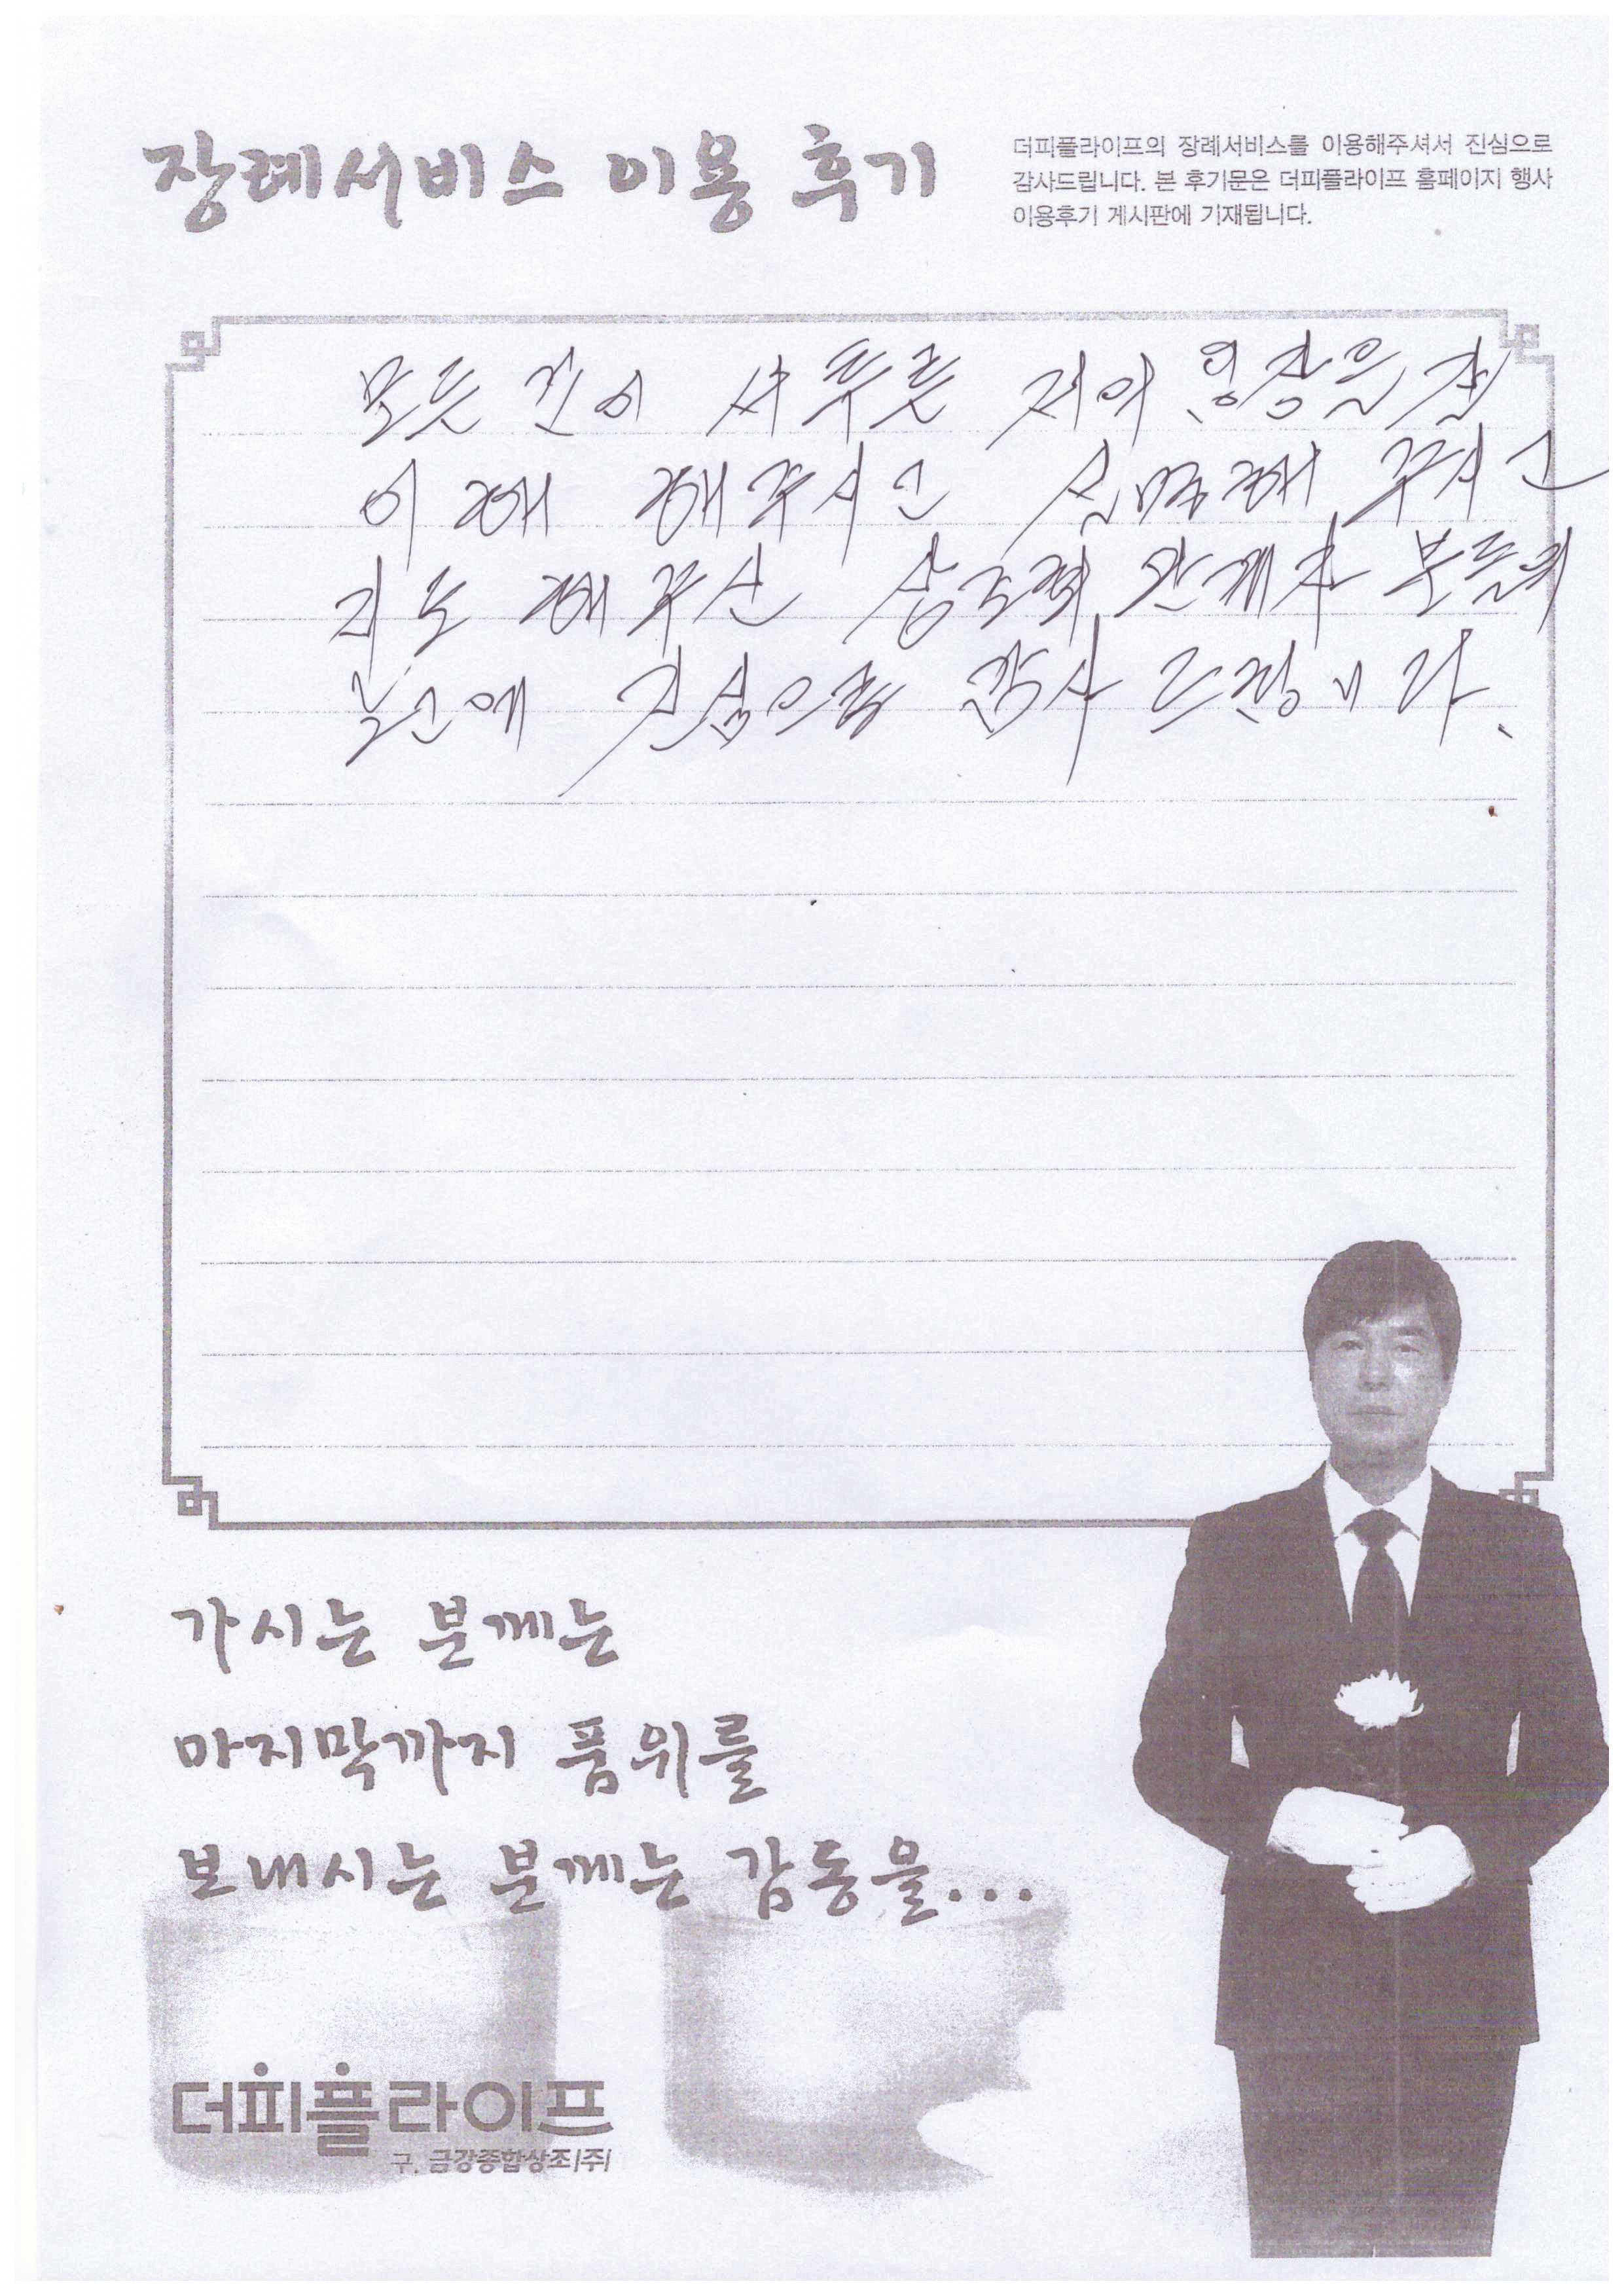 장례서비스 이용 후기
더피플라이프의 장례서비스를 이용해주셔서 진심으로
감사드립니다. 본 후기문은 더피플라이프 홈페이지 행사
이용후기 게시판에 기재됩니다.
모든 것이 서투른 저의 입장을 잘
이해 해주시고 설명해 주시고
지도 해주신 상조회 관계자 분들의
노고에 진심으로 감사 드립니다.
가시는 분께는
마지막까지 품위를
보내시는 분께는 감동을...
더피플라이프
구. 금강종합상조(주)